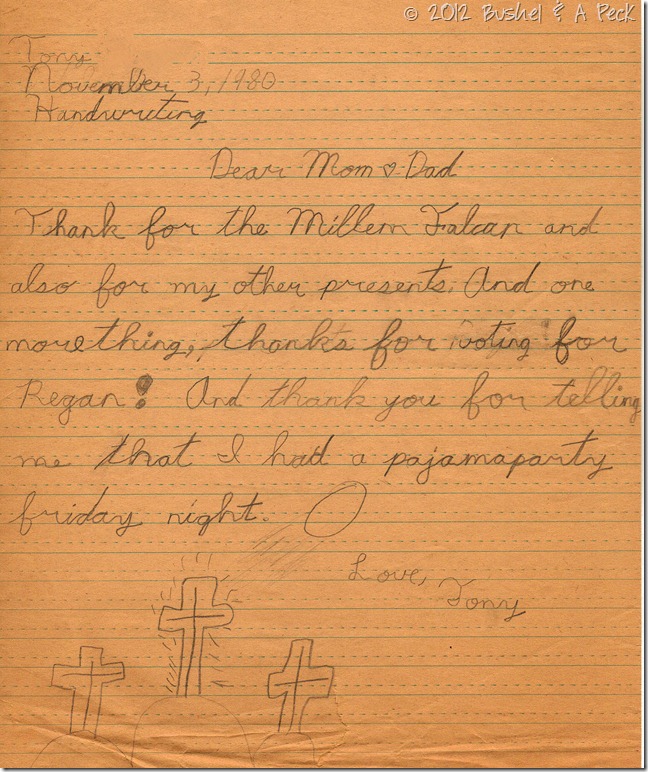 © 2012 Bushel & A Peck
Tony
November 3, 1980
Handwriting
Dear Mom ♡ Dad
Thank for the Millem Falcan and
also for my other presents. And one
more thing, thanks for voting for
Regan! And thank you for telling
me that I had a pajamaparty
friday night.
Love,
Tony